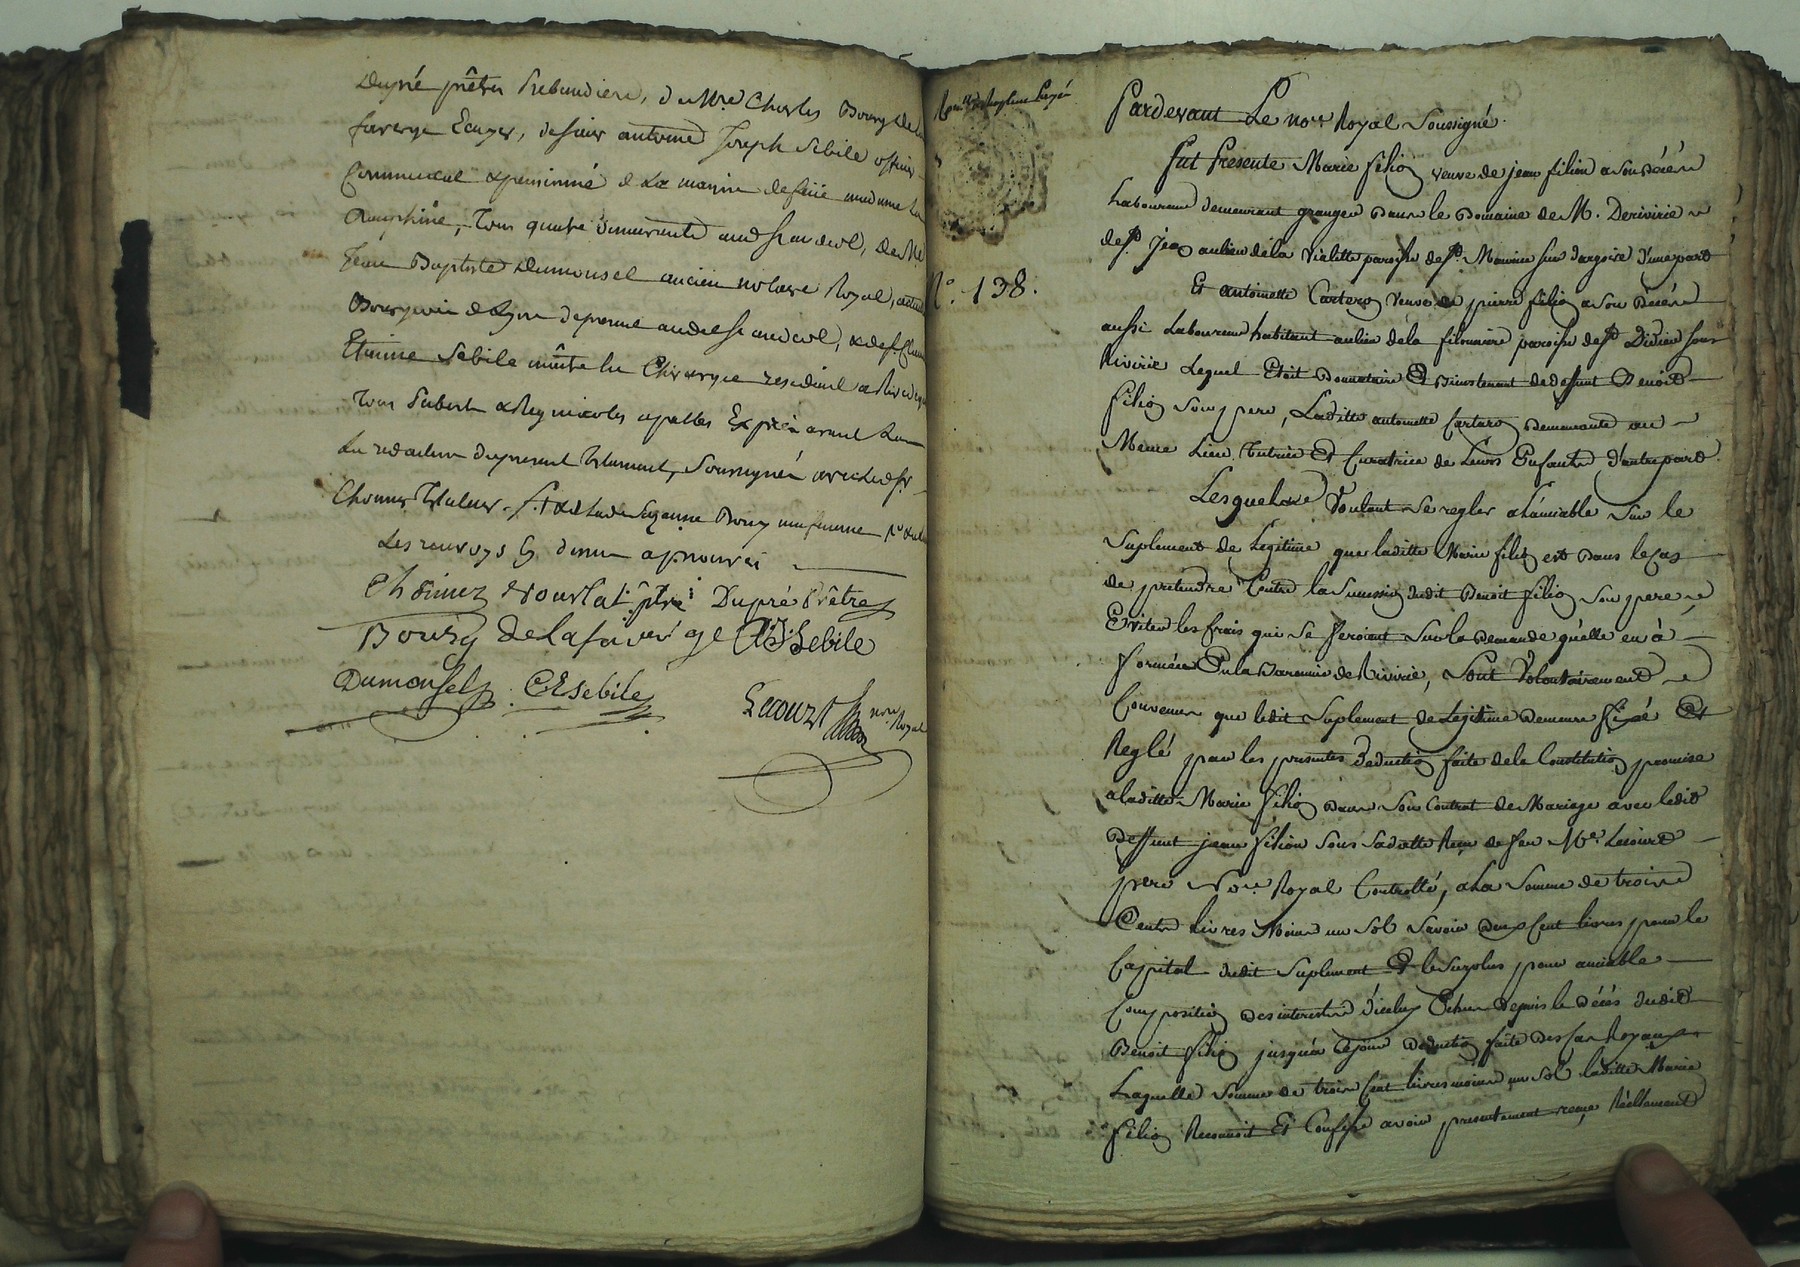 Dupré prêtre Prebendiere, de Mre Charles Bourg de la
faverge Ecuyer, de sieur antoine Joseph Sebile officier
Commensal & pensionné de La maison de feüe madame la
Dauphine, Tous quatre demeurants aud St andeol, de Me
Jean Baptiste Dumonsel ancien notaire Royal,
Bourgeois de Lyon de present aud St andeol, & de Sr
Etienne Sebile maitre en Chirurgie residant a Rive de
Tous Pub &
La redaction du present testament, Soussignés avec led Sr
Les renvoys approuvés
Dupré Prêtre
Bourg De Lafaverge AJSebile
Dumonsel CESebile
Lecourt nore Royal
payé
No. 138.
Pardevant Le nore Royal Soussigné.
fut Presente Marie filion veuve de jean filion a Son Décès
Laboureur demeurant granger Dans le Domaine de M. Derivirie
de St Jean au lieu de la Violette paroisse de St Maurice sur dargoire d'une part
Et antoinette Cartero Veuve de pierre filion a Son Décès
aussi Laboureur habitant au lieu de la filonniere paroisse de St Didier sous
Rivirie Lequel Etoit Donnataire Et Bientenant de deffunt Benoit
filion Son pere, Laditte antoinette Cartero Demeurante au
Meme Lieu Tutrice Et Curatrice de Leurs Enfants d'autre part.
Lesquelles Voulant Se regler a L'amiable Sur le
Suplement de Legitime que laditte Marie filion est Dans le cas
de pretendre Contre la Succession dudit Benoit filion Son pere
Eviter les frais qui Se feroient Sur la Demande qu'elle en à
formée En la Baronnie de Rivirie, Sont Volontairement
Convenues que ledit Suplement de Legitime Demeure fixé Et
Reglé par les presentes Deduction faite de la Constitution promise
a laditte Marie filion Dans Son Contrat de Mariage avec ledit
Deffunt jean filion Sous Sa datte Reçu de feu Me Lecourt
pere Nore Royal Controllé, a La Somme de trois
Cents livres Moins un Sol Savoir Deux Cent livres pour le
Capital dudit Suplement Et le Surplus pour amiable
Composition des interests d'icelui Echus Depuis le Décès dudit
Benoit filion jusqu'à Ce jour Deduction faite Des Cas Royaux
Laquelle Somme de trois Cent livres moins un Sol laditte Marie
filion Reconnoit Et Confesse avoir presentement reçue Réellement